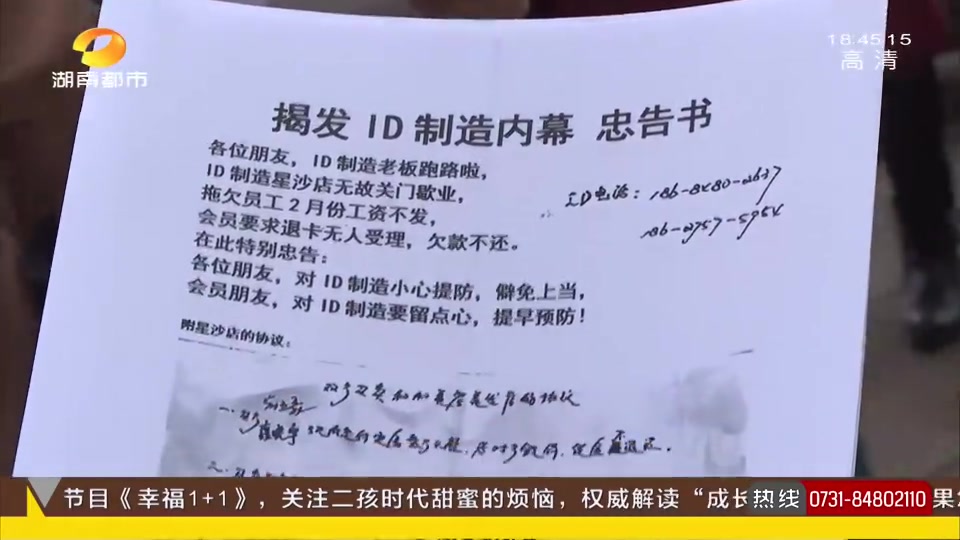 湖南都市
18:45:15
高清
揭发 ID 制造内幕 忠告书
各位朋友，ID 制造老板跑路啦，
ID 制造星沙店无故关门歇业，
拖欠员工 2 月份工资不发，
会员要求退卡无人受理，欠款不还。
在此特别忠告：
各位朋友，对 ID 制造小心提防，僻免上当，
会员朋友，对 ID 制造要留点心，提早预防！
ID电话：186-8480-2637
186-2757-5954
附星沙店的协议：
节目《幸福1+1》，关注二孩时代甜蜜的烦恼，权威解读“成长
热线 0731-84802110